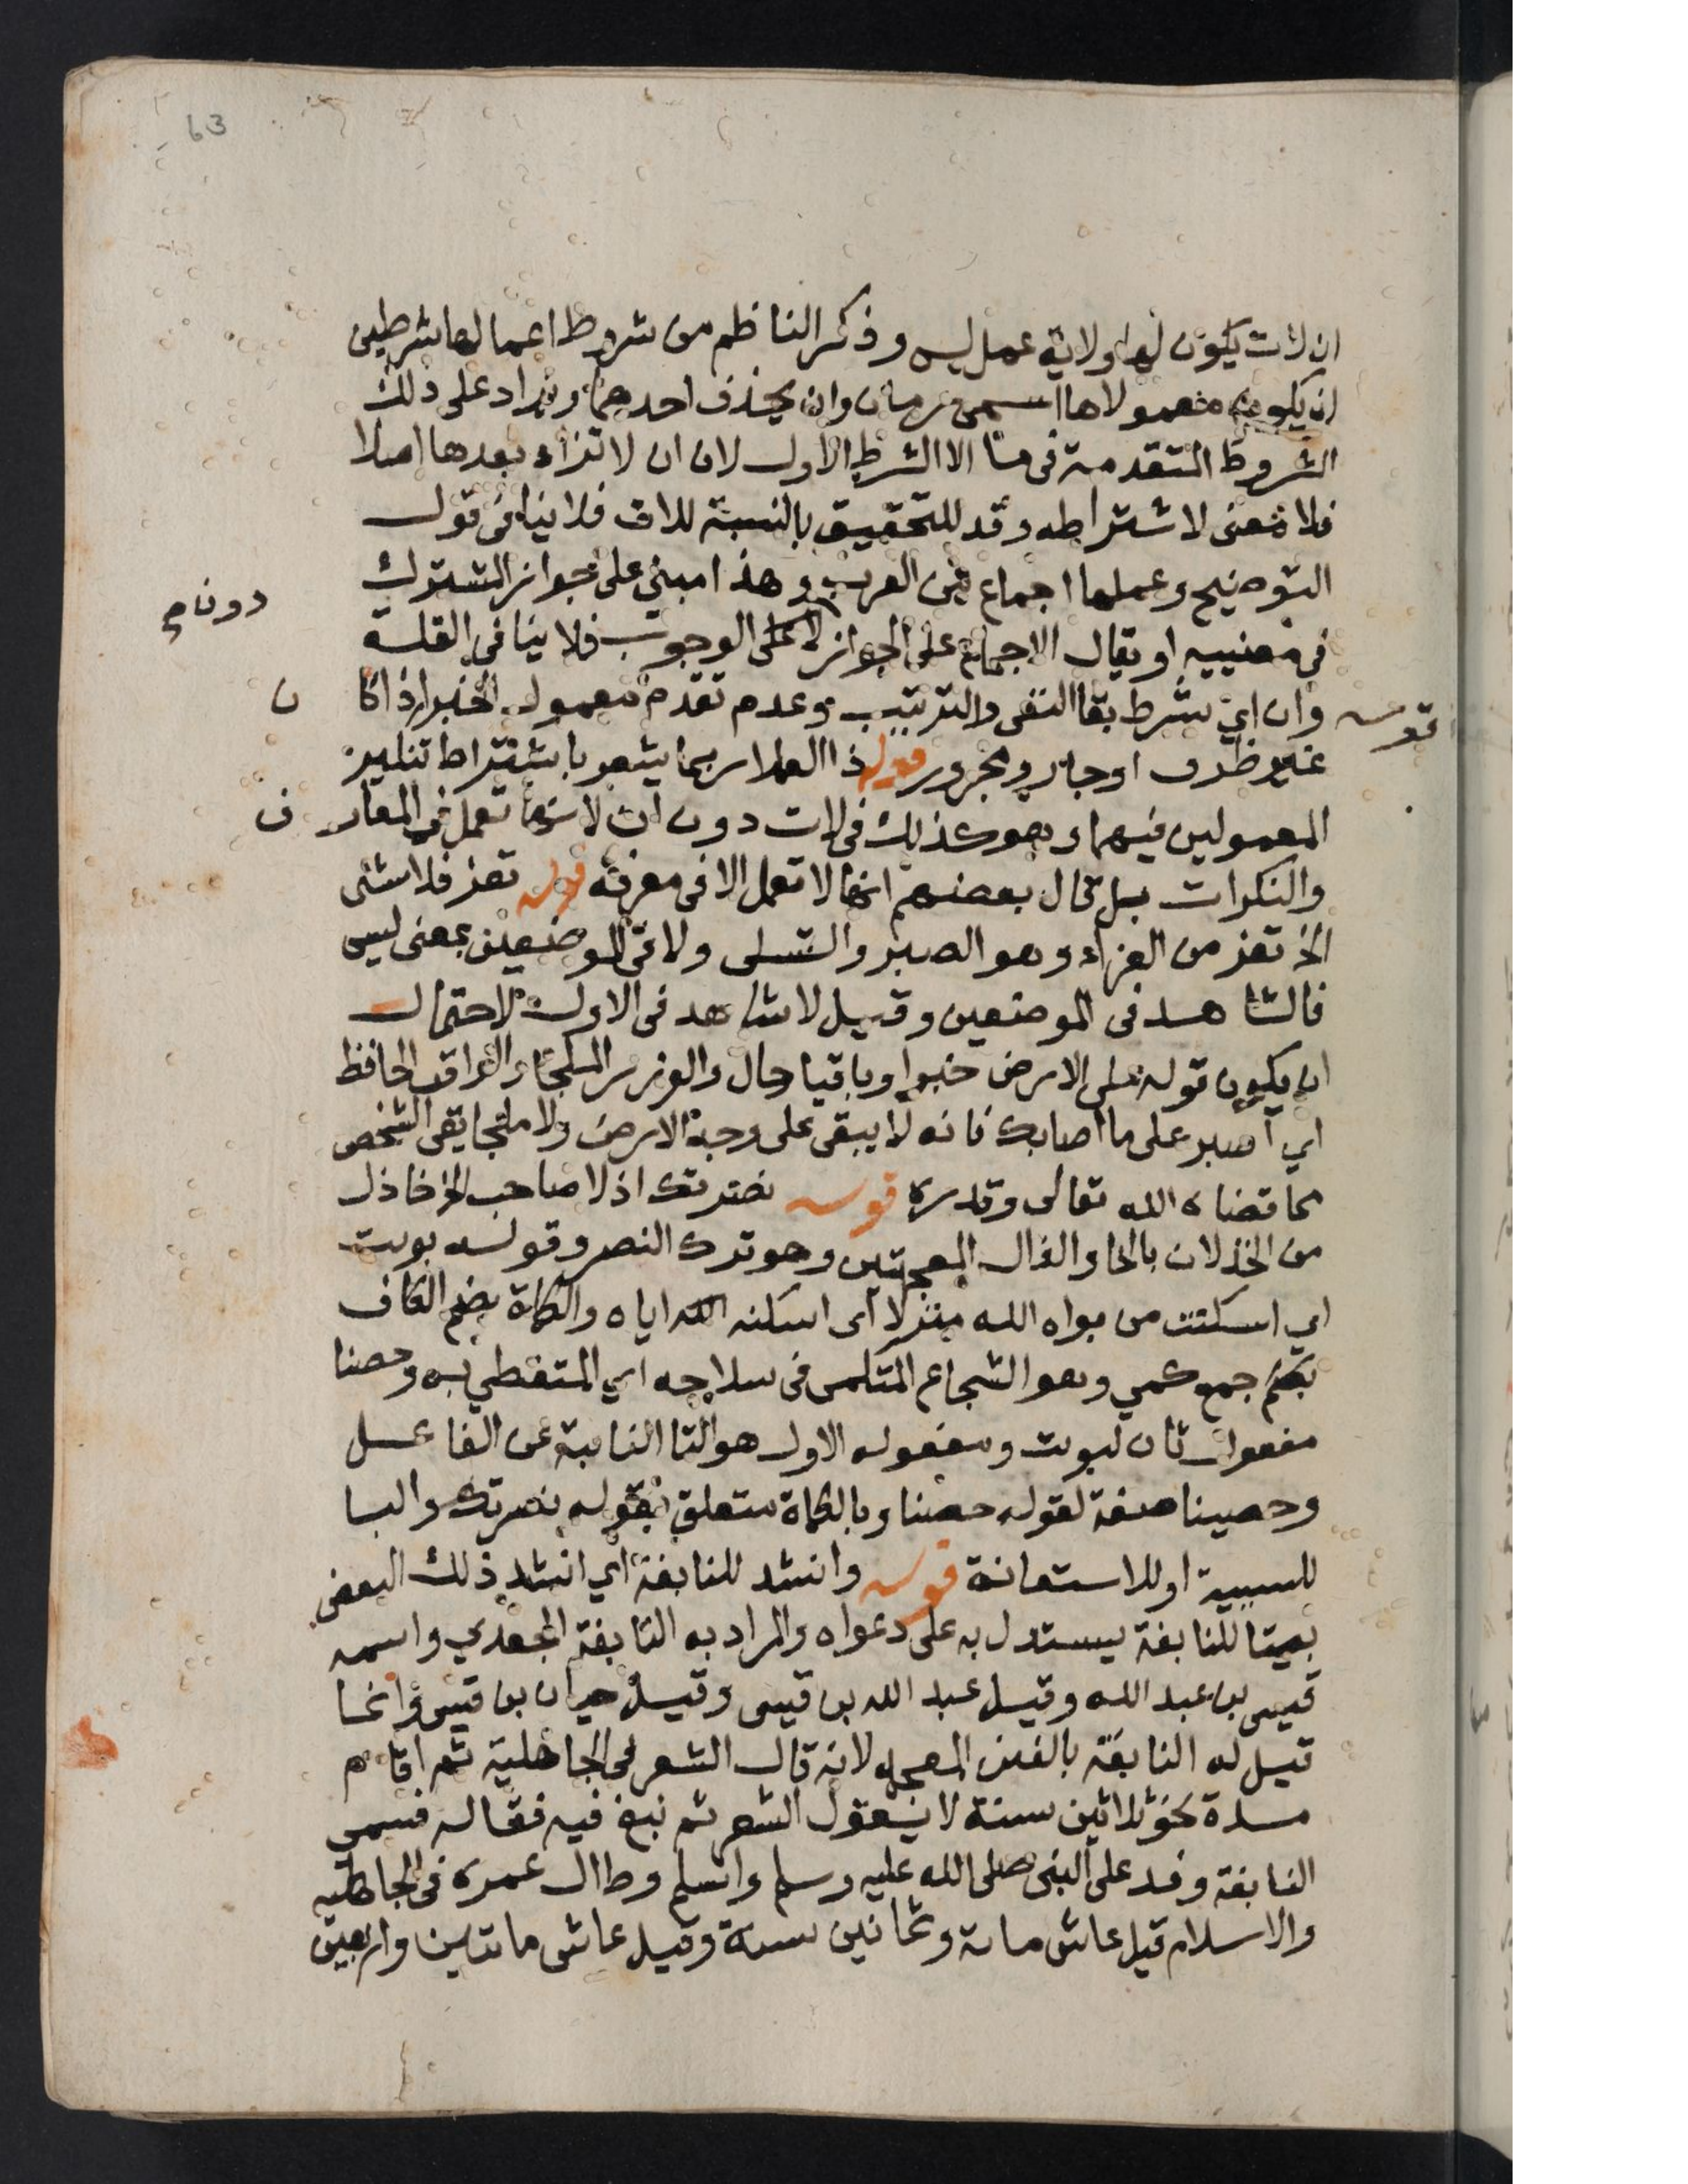 63
ان لات يكون لها ولاية عمل ليس وذكر الناظم من شروط اعمالها شرطين
ان يكون معمولاها اسمى زمان وان يحذف احدهما ويزاد على ذلك
الشروط المتقدمة فى ما الا الشرط الاول لان ان لا تزاد بعدها اصلا
فلا معنى لاشتراطه وقد للتحقيق بالنسبة للات فلا ينافى قول
التوضيح وعملها اجماع من العرب وهذا مبني على جواز المشترك
دون ام
في معنييه او يقال الاجماع على الجواز لا على الوجوب فلا ينافى القلة
قوله وان اي بشرط بقا النفى والترتيب وعدم تقدم معمول الخبر اذا كا ن
غير ظرف او جار ومجرور قوله ذا العملا ربما يشعر باشتراط تنكير
المعمولين فيهما وهو كذلك فى لات دون ان لانها تعمل فى المعار ف
والنكرات بل قال بعضهم انها لا تعمل الا فى معرفة قوله تعز فلا شئ
الخ تعز من العزاء وهو الصبر والتسلى ولا فى الموضعين بمعنى ليس
فالشاهد فى الموضعين وقيل لا شاهد فى الاول لاحتمال
ان يكون قوله على الارض خبرا وباقيا حال والوزر الملجا والواقى الحافظ
اي اصبر على ما اصابك فانه لا يبقى على وجه الارض ولا ملجا يقى الشخص
مما قضاه الله تعالى وقدره قوله نصرتك اذ لا صاحب الخ خاذل
من الخذلان بالخا والذال المعجمتين وهو ترك النصر وقوله بوئت
اي اسكنت من بواه الله منزلا اى اسكنه الله اياه والكماة بضم الكاف
جمع كمي وهو الشجاع المتكمى فى سلاحه اي المتغطي به وحصنا
مفعول ثان لبوئت ومفعوله الاول هو التا النايبة عن الفاعل
وحصينا صفة لقوله حصنا وبالكماة متعلق بقوله نصرتك والبا
للسببية او للاستعانة قوله وانشد للنابغة اي انشد ذلك البعض
بيتا للنابغة يستدل به على دعواه والمراد به النابغة الجعدي واسمه
قيس بن عبد الله وقيل عبد الله بن قيس وقيل حيان بن قيس وانما
قيل له النابغة بالغين المعجمه لانه قال الشعر فى الجاهلية ثم اقام
مدة نحو ثلاثين سنة لا يقول الشعر ثم نبغ فيه فقاله فسمى
النابغة وفد على النبى صلى الله عليه وسلم واسلم وطال عمره فى الجاهلية
والاسلام قيل عاش مائة وثمانين سنة وقيل عاش مائتين واربعين